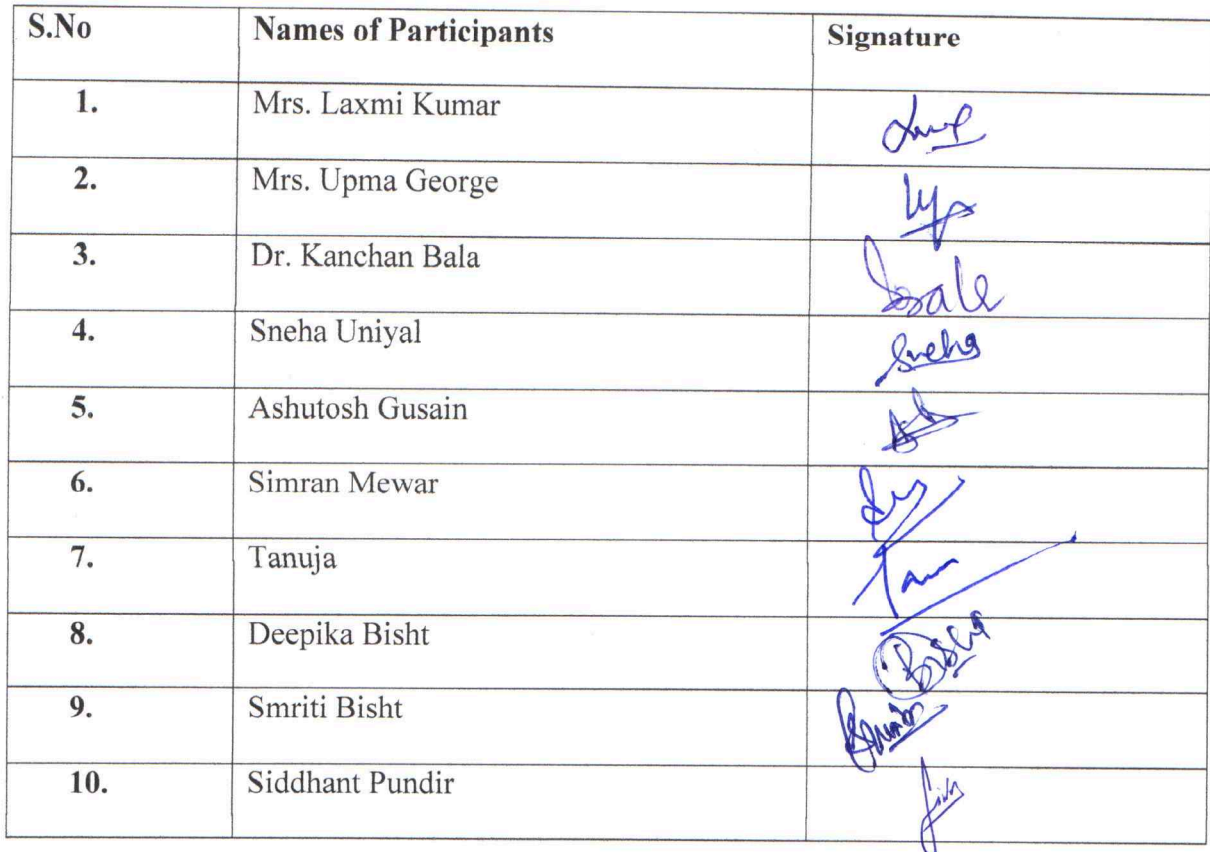 S.No Names of Participants Signature
1. Mrs. Laxmi Kumar
2. Mrs. Upma George
3. Dr. Kanchan Bala Bala
4. Sneha Uniyal Sneha
5. Ashutosh Gusain
6. Simran Mewar
7. Tanuja
8. Deepika Bisht
9. Smriti Bisht
10. Siddhant Pundir